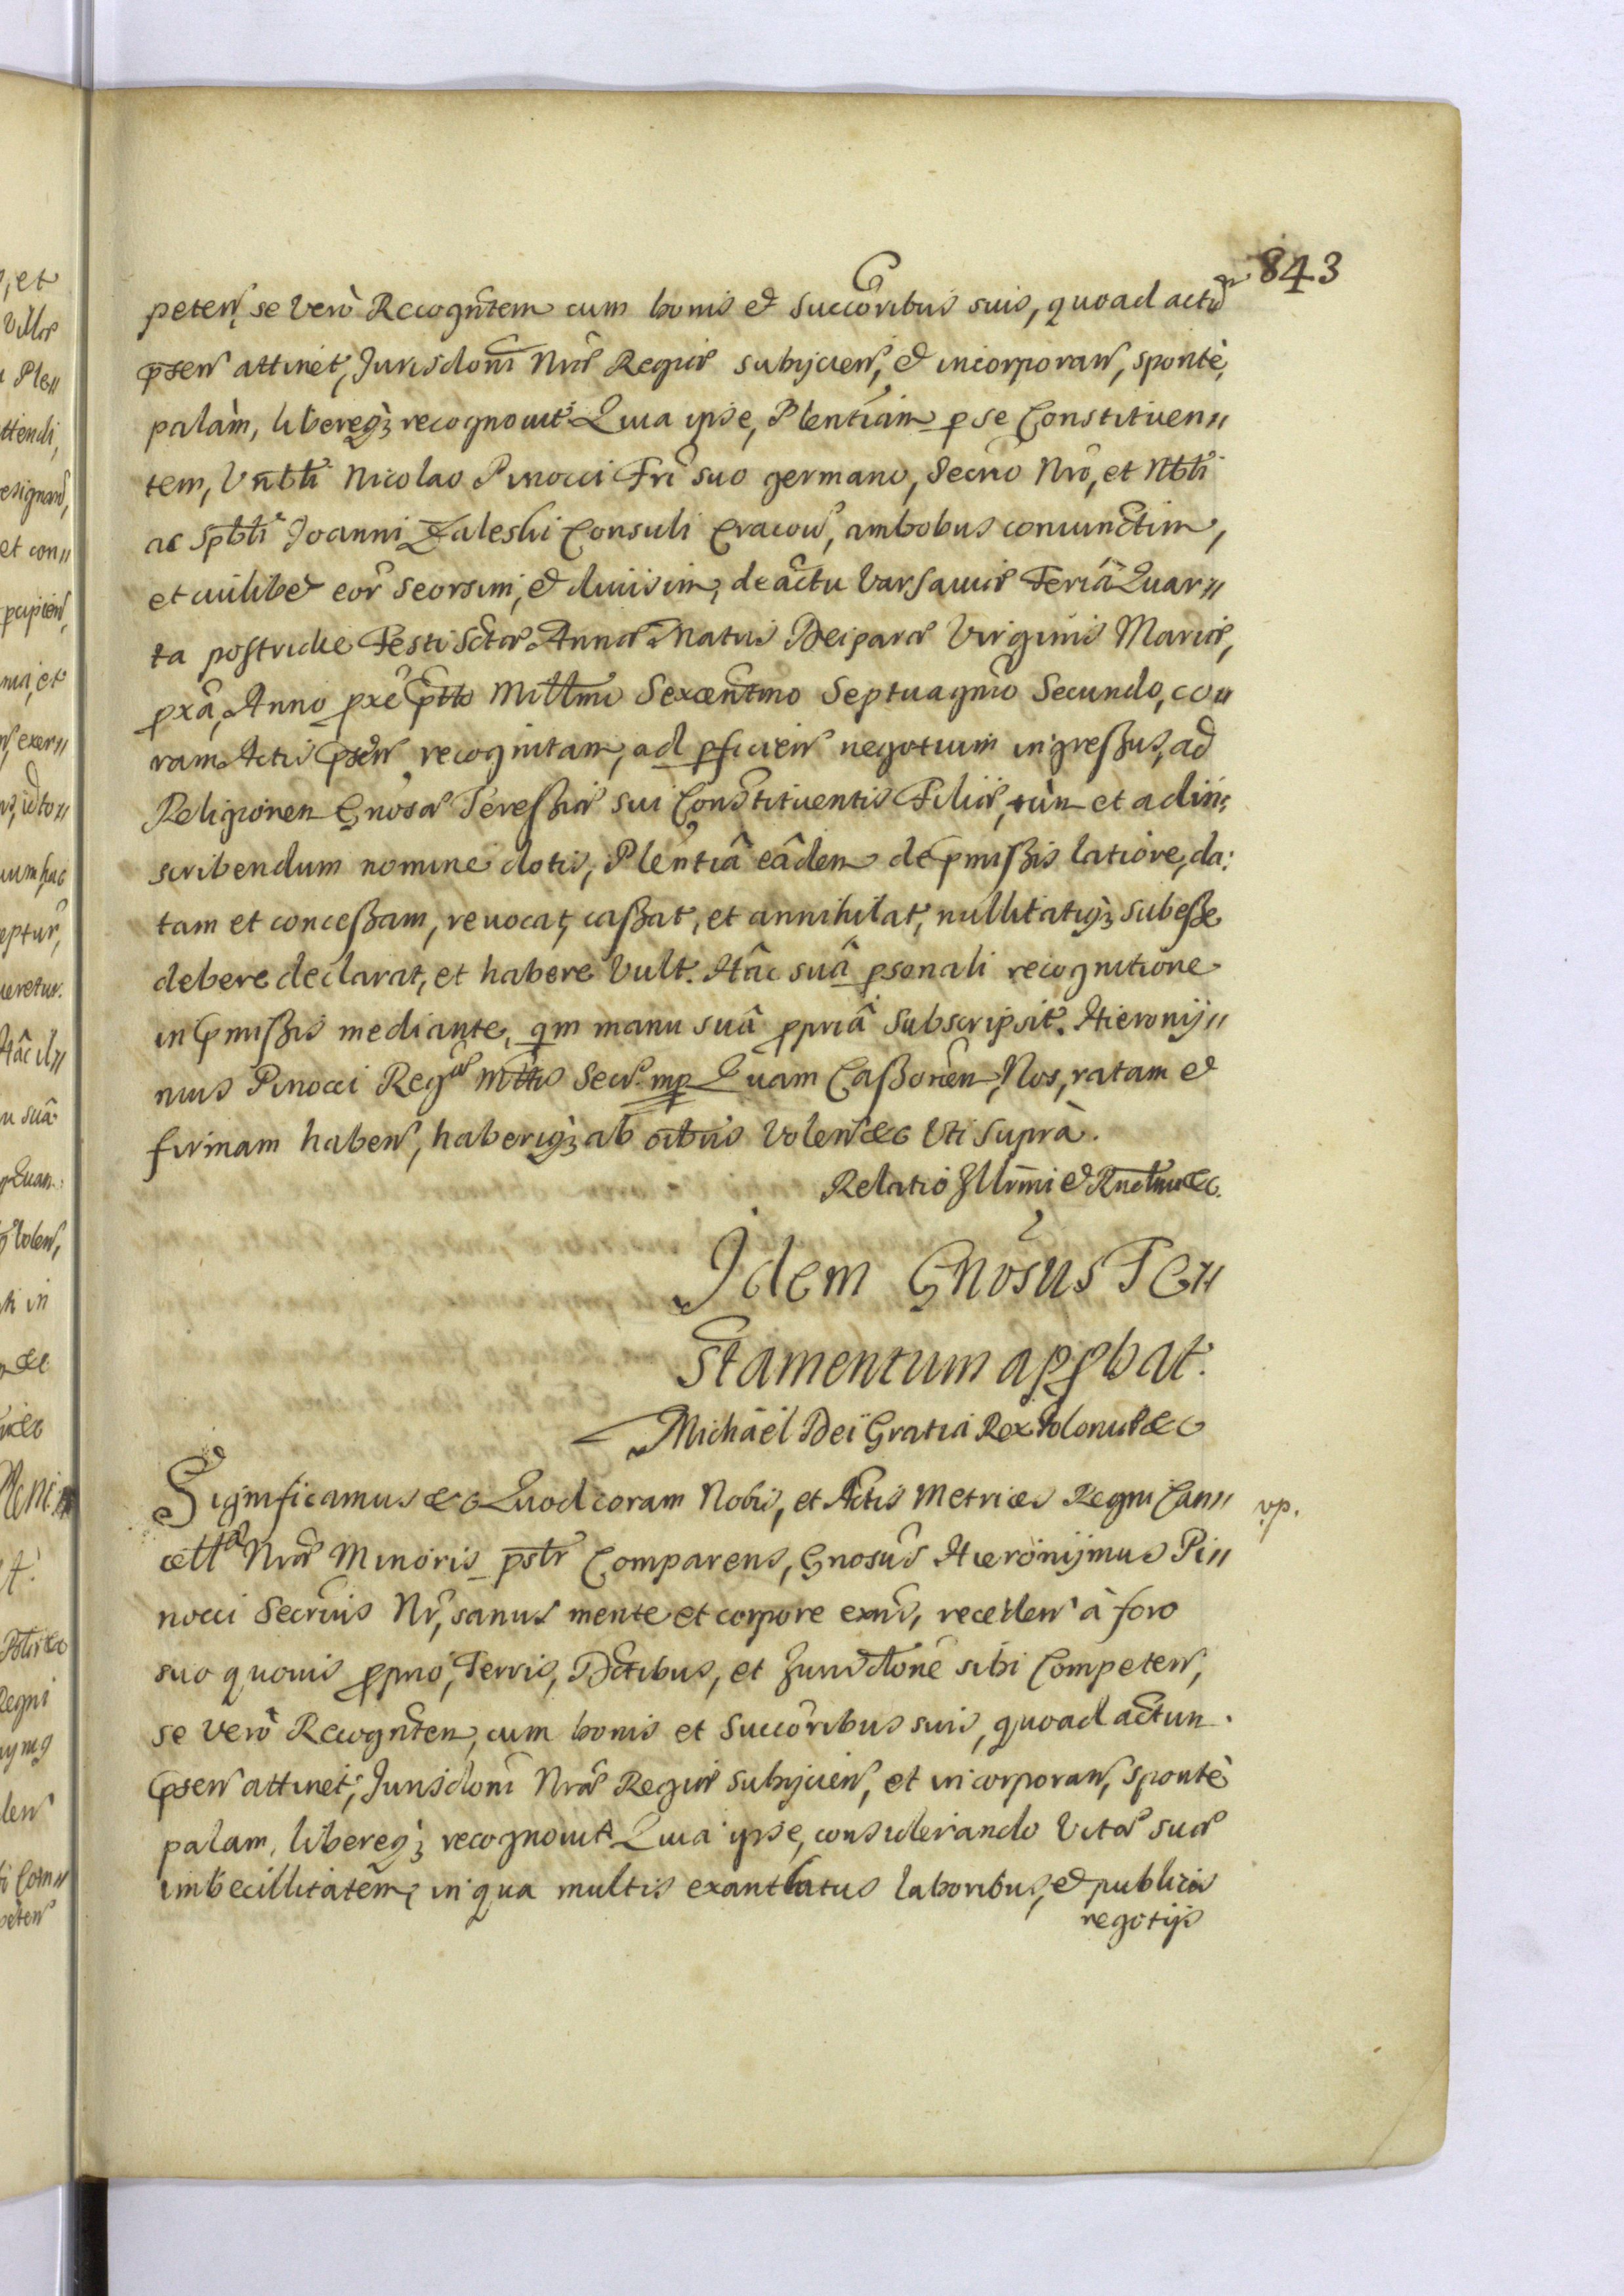 843
peten, se verò Recogntem cum bonis et Succoribus suis, quoad actū
psen attinet, Jurisdoni Nrae Regiae subijcien, et incorporan, spontè,
palàm, libereqz recognovit Quia ipse, Plentiam p se Constituen„
tem, Vnbli Nicolao Pinocci Fri suo germano, Secrio Nro, et Nbli
ac Spbli Joanni Zaleski Consuli Cracov, ambobus coniunctim,
et cuilibet eor seorsim, et diuisim, de actu Varsauiae Feria Quar„
ta postridie Festi Sctae Annae Matris Deiparae Virginis Mariae,
pxâ, Anno pxe ptto Millmo Sexcentmo Septuagmo Secundo, co„
ram Actis psen recognitam, ad pficien negotium ingreßus, ad
Religionem Gnosae Tereßiae sui Constituentis Filiae, tùm et ad in„
scribendum nomine dotis, Plentiâ eâdem de pmißis latiore, da:
tam et conceßam, reuocat, caßat, et annihilat, nullitatiqz subeße
debere declarat, et habere vult. Hâc suâ psonali recognitione
in pmißis mediante, qm manu suâ ppriâ subscripsit. Hieronij„
mus Pinocci Regiae Mttis Secr. mp Quam Caßonem, Nos, ratam et
firmam haben, haberiqz ab oibus volen &c Vti suprà.
Relatio Illrmi et Rndmi &c.
Jdem Gnosus Te„
stamentum appbat.
Michaël Dei Gratia Rex Poloniae &c
Significamus &c Quod coram Nobis, et Actis Metrices Regni Can„ vp.
cellae Nrae Minoris pslr Comparens, Gnosus Hieronijmus Pi„
nocci Secrius Nr, sanus mente et corpore exns, receden à foro
suo quouis pprio, Terris, Dctibus, et Jurisdctone sibi Competen,
se verò Recognten, cum bonis et Succoribus suis, quoad actum
psen attinet, Jurisdoni Nrae Regiae subijcien, et incorporan, spontè
palam, libereqz recognouit Quia ipse, considerando Vitae suae
imbecillitatem, in qua multis exantlatus laboribus, et publicis
negotijs